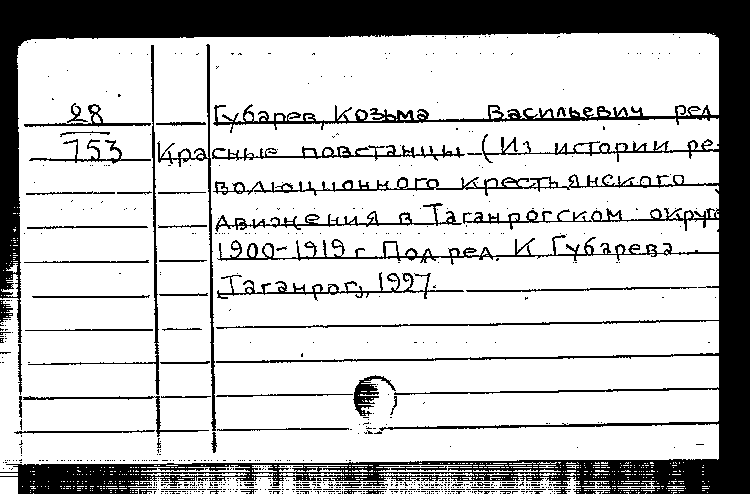 28 Губарев, Козьма Васильевич ред
753 Красные повстанцы (Из истории ре-
волюционного крестьянского
движения в Таганрогском округе
1900-1919 г Под ред. К. Губарева.
Таганрог, 1927.